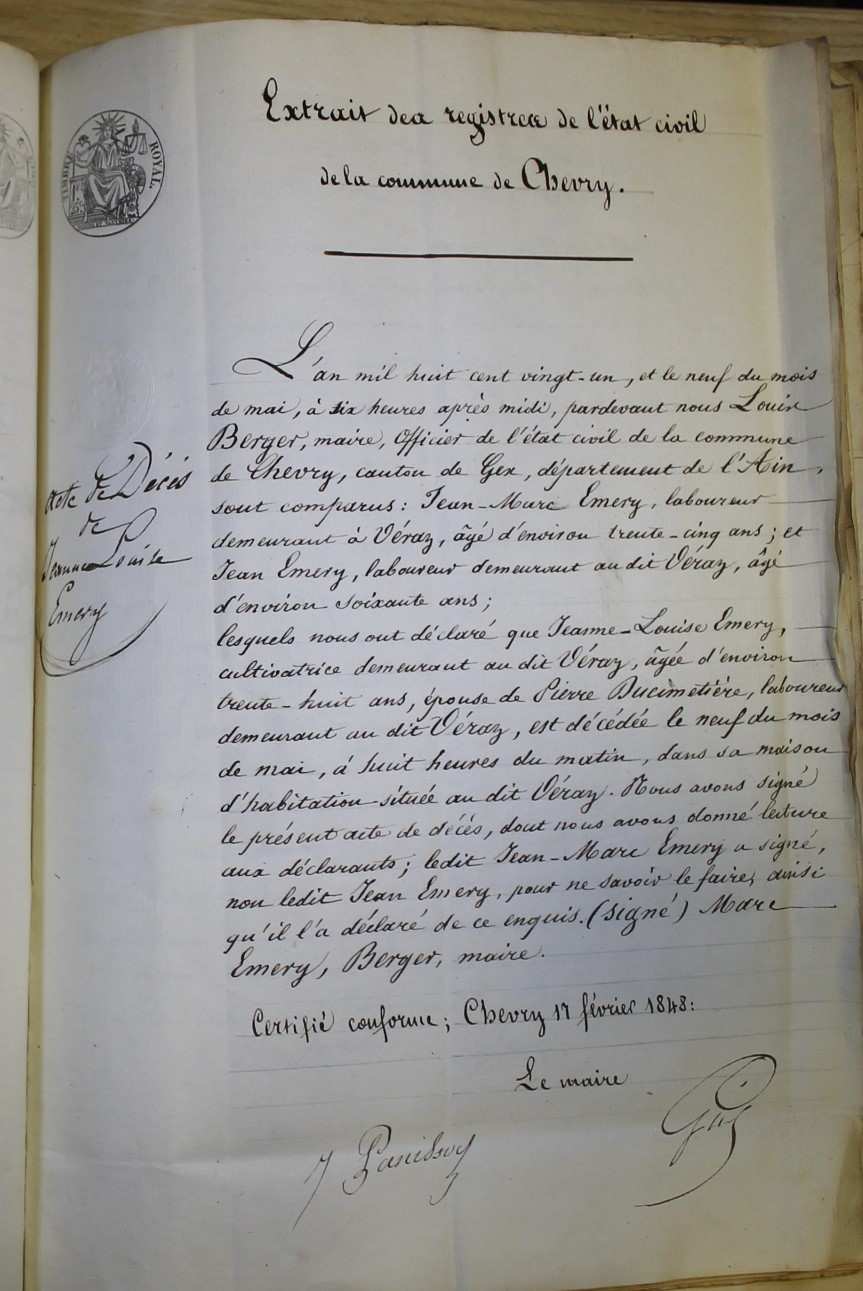 Extrait des registres de l'état civil
de la commune de Chevry.
TIMBRE ROYAL.
L'an mil huit cent vingt-un, et le neuf du mois
de mai, à six heures après midi, pardevant nous Louis
Berger, maire, Officier de l'état civil de la commune
de Chevry, canton de Gex, département de l'Ain,
sont comparus : Jean-Marc Emery, laboureur
demeurant à Véraz, âgé d'environ trente-cinq ans ; et
Jean Emery, laboureur demeurant au dit Véraz, âgé
d'environ soixante ans ;
lesquels nous ont déclaré que Jeanne-Louise Emery,
cultivatrice demeurant au dit Véraz, âgée d'environ
trente-huit ans, épouse de Pierre Ducimetière, laboureur
demeurant au dit Véraz, est décédée le neuf du mois
de mai, à huit heures du matin, dans sa maison
d'habitation située au dit Véraz. Nous avons signé
le présent acte de décès, dont nous avons donné lecture
aux déclarants ; ledit Jean-Marc Emery a signé,
non ledit Jean Emery, pour ne savoir le faire, ainsi
qu'il l'a déclaré de ce enquis. (signé) Marc
Emery, Berger, maire.
acte de Décès
de
Jeanne Louise
Emery
Certifié conforme ; Chevry 17 février 1848 :
Le maire